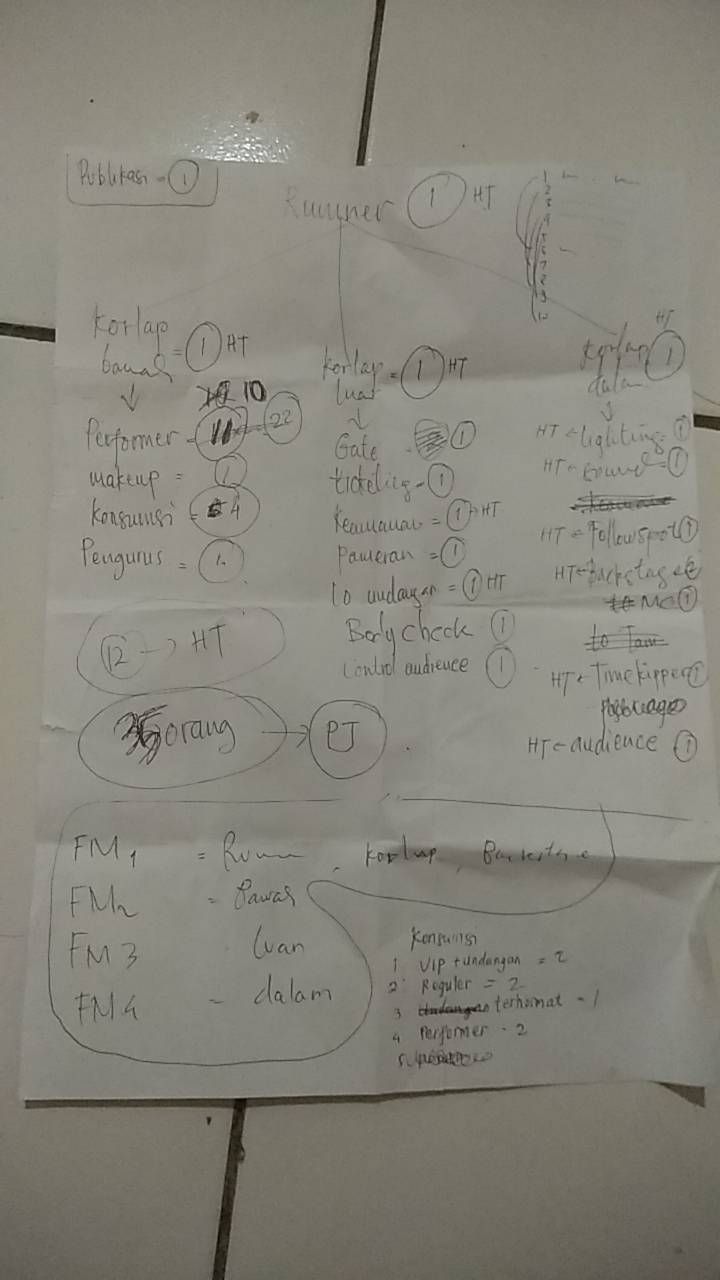 Publikasi = 1
Runner 1 HT
1
2
3
4
5
6
7
8
9
10
Korlap bawah = 1 HT
10
Performer = 11 22
makeup = 1
Konsumsi = 4
Pengurus = 1
12 → HT
35 orang → PJ
Korlap luar = 1 HT
Gate = 1
ticketing = 1
Keamanan = 1 → HT
Pameran = 1
lo undangan = 1 HT
Body check 1
Control audience 1
HT
Korlap dalam 1
HT ← lighting = 1
HT ← = 1
HT ← Followspot 1
HT ← Backstage
MC 1
to Tam
HT ← Timekipper 1
HT ← audience 1
FM1 = Runn , Korlap, Backstage
FM2 = Bawah
FM3 luar
FM4 = dalam
Konsumsi
1 VIP + undangan = 2
2 Reguler = 2
3 undangan terhormat = 1
4 Performer - 2